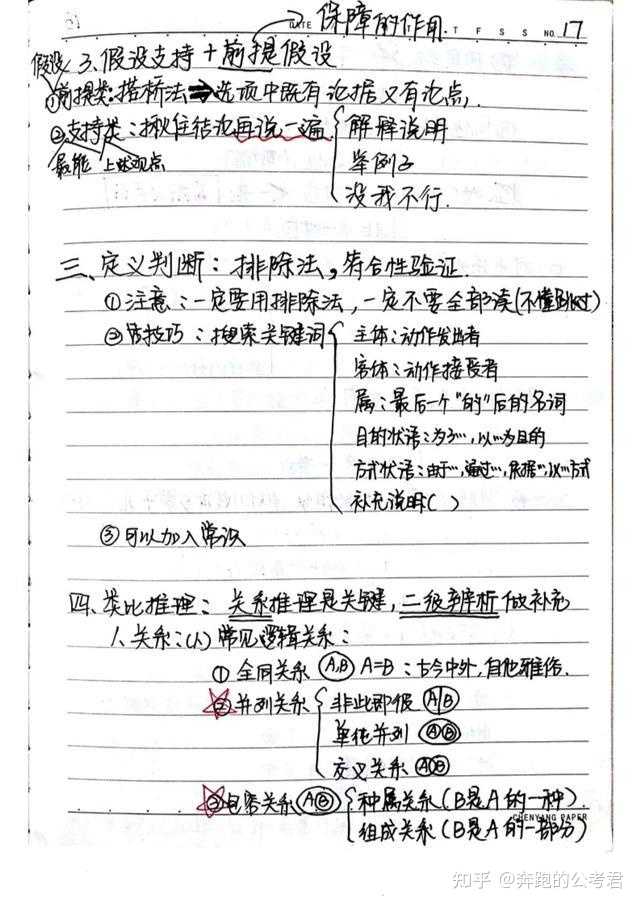 保障的作用
DATE T F S S NO. 17
假设 3、假设支持+前提假设
①前提类:搭桥法⇒选项中既有论据又有论点.
②支持类:揪住结论再说一遍 解释说明
最能 上述观点 举例子
没我不行.
三、定义判断:排除法,符合性验证.
①注意:一定要用排除法,一定不要全部读
②技巧:搜索关键词 主体:动作发出者
客体:动作接受者
属:最后一个"的"后的名词
目的状语:为了…,以…为目的
方式状语:由于…,通过…,依据…,以…方式
补充说明( )
③可以加入常识
四、类比推理:关系推理是关键,二级辨析做补充
1、关系:(1)常见逻辑关系:
①全同关系 A,B A=B:古今中外,自他雅俗.
②并列关系 非此即彼 A|B
单纯并列 A B
交叉关系 A B
③包容关系 A B 种属关系(B是A的一种)
CHENYANG PAPER
组成关系(B是A的一部分)
知乎 @奔跑的公考君